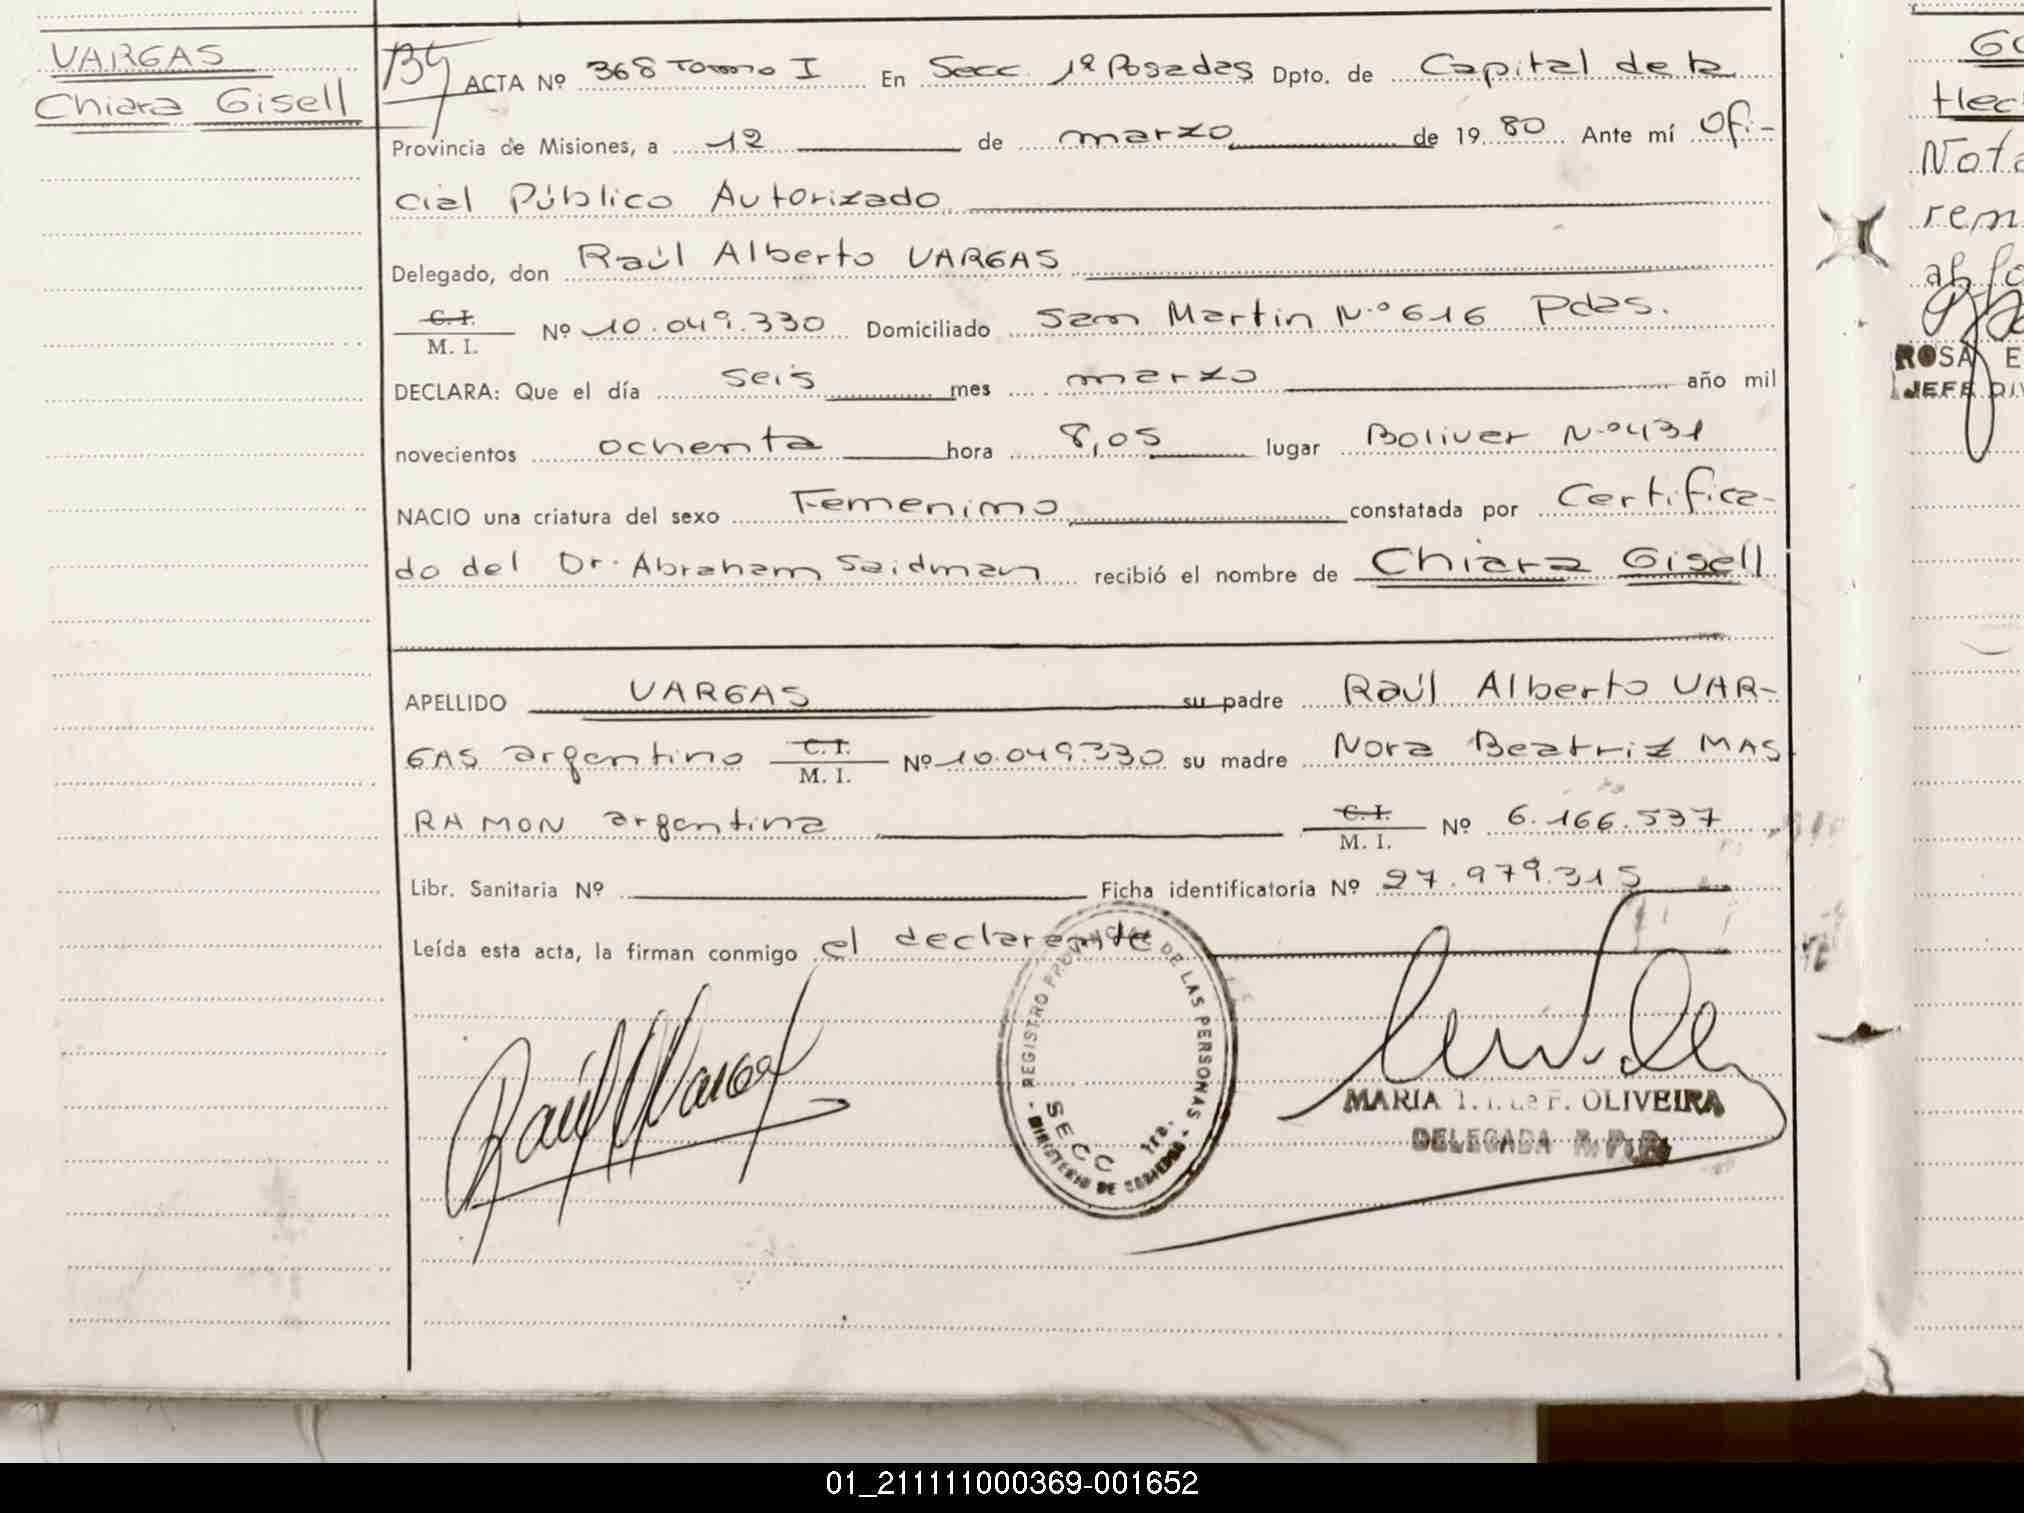 VARGAS
Chiara Gisell
ACTA Nº 368 Tomo I En Secc. 1ª Posadas Dpto. de Capital de la
Provincia de Misiones, a 12 de marzo de 19 80 Ante mí Ofi-
cial Público Autorizado
Delegado, don Raúl Alberto VARGAS
C. I.
M. I. Nº 10.049.330 Domiciliado San Martin N.º 616 Pdas.
DECLARA: Que el día seis mes marzo año mil
novecientos ochenta hora 8,05 lugar Boliver N.º 431
NACIO una criatura del sexo Femenino constatada por Certifica-
do del Dr. Abraham Saidman recibió el nombre de Chiara Gisell
APELLIDO VARGAS su padre Raúl Alberto VAR-
GAS argentino C. I. M. I. Nº 10.049.330 su madre Nora Beatriz MAS
RAMON argentina C. I. M. I. Nº 6.166.537
Libr. Sanitaria Nº Ficha identificatoria Nº 27.979.315
Leída esta acta, la firman conmigo el declarante
Raúl A Vargas
REGISTRO PROVINCIAL DE LAS PERSONAS
SECC 1ra.
MINISTERIO DE GOBIERNO
MARIA de F. OLIVEIRA
DELEGADA R. P. P.
Nota
rem
ROSA E
JEFE DIV
01_211111000369-001652